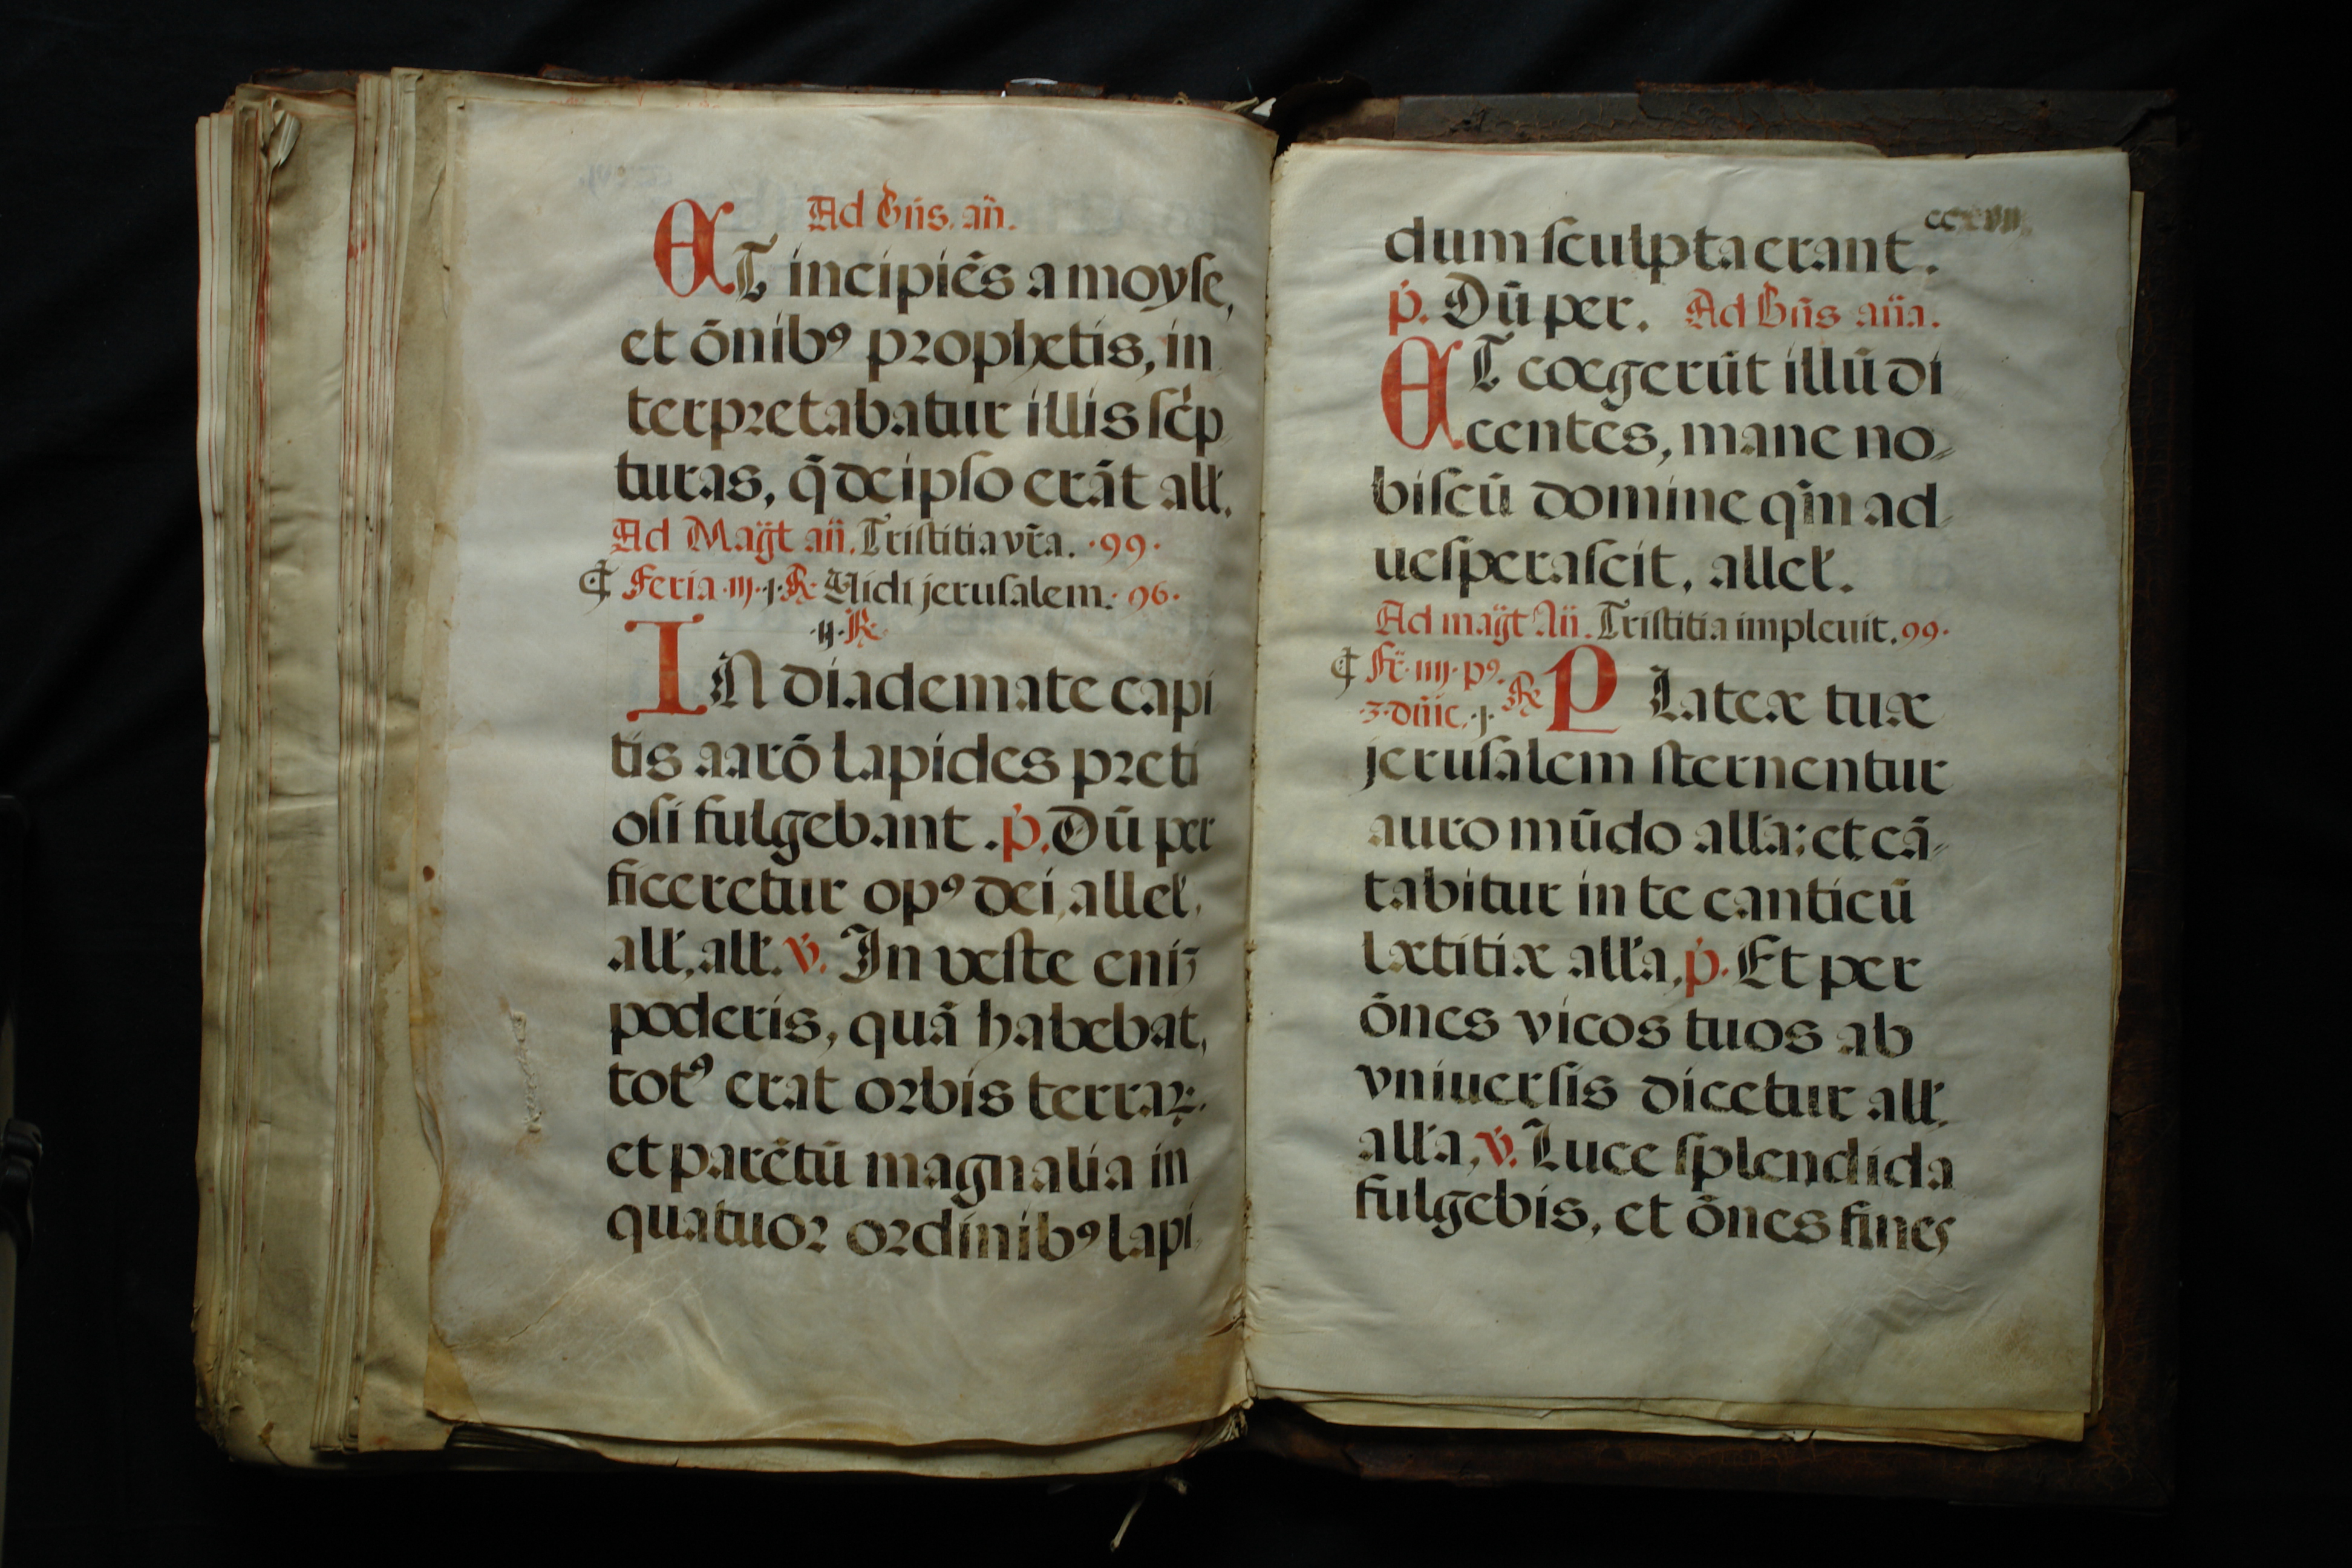 Ad Bñs. añ.
ET incipiēs a moyse,
et ōnibꝰ prophetis, in
terpretabatur illis scͥp
turas, q̄ de ipso erāt all'.
Ad Mag̃t añ. Tristitia vr̄a. ·99·
¶ Feria ·iij· ·j· ℟ Uidi jerusalem. ·96·
·ij· ℟
IN diademate capi
tis aarō lapides preti
osi fulgebant. p̊. Dū per
ficeretur opꝰ dei, allel'.
all', all'. ℣. In veste eniʒ
poderis, quā habebat,
totꝰ erat orbis terraꝝ.
et parētū magnalia in
quatuor ordinibꝰ lapi
dum sculpta erant.
p̊. Dū per. Ad Bñs aña.
ET coegerūt illū di
centes, mane no-
biscū domine qm̄ ad
uesperascit, allel'.
Ad mag̃t Añ. Tristitia impleuit. 99·
¶ Fe͂ ·iiij· pꝰ. ℟ Plateæ tuæ
·3· dñic. ·j·
jerusalem sternentur
auro mūdo all'a: et cā-
tabitur in te canticū
lætitiæ all'a. p̊. Et per
ōnes vicos tuos ab
vniuersis dicetur all'.
all'a, ℣. Luce splendida
fulgebis, et ōnes fines